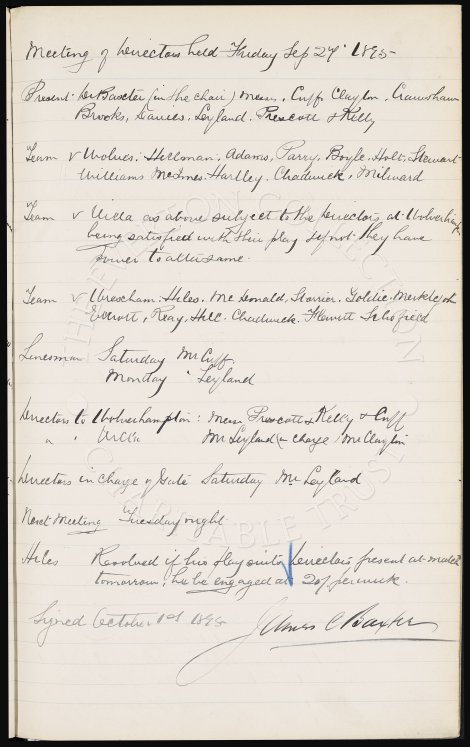 Meeting of Directors held Friday Sep 27th 1895
Present. Dr Baxter (in the chair) Messrs. Cuff, Clayton, Crawshaw
Brooks, Davies, Leyland, Prescott & Kelly
Team v Wolves. Hillman, Adams, Parry, Boyle, Holt, Stewart
Williams McInnes, Hartley, Chadwick, Milward
Team v Villa as above subject to the Directors at Wolverhampton
being satisfied with their play if not they have
power to alter same.
Team v Wrexham. Hiles. McDonald, Storrier, Goldie, Meiklejohn
Elliott, Reay, Hill. Chadwick. Flewitt Schofield
Linesman Saturday Mr Cuff.
Monday " Leyland
Directors to Wolverhampton: Messrs Prescott & Kelly & Cuff
" " Villa Mr Leyland (in charge) Mr Clayton
Directors in charge of Gate Saturday Mr Leyland
Next Meeting Tuesday night
Hiles Resolved if his play suits Directors present at match
tomorrow, he be engaged at 20/ per week.
Signed October 1st 1895 James C Baxter
THE EVERTON COLLECTION
CHARITABLE TRUST